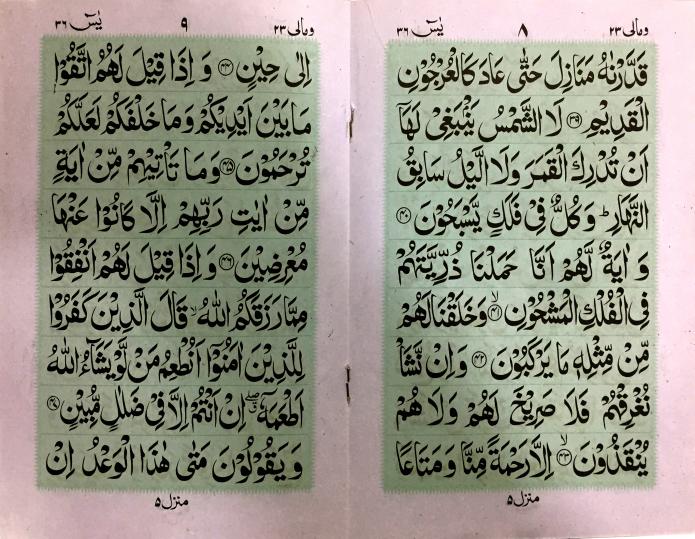 ومالی ۲۳ ۸ یٰسٓ ۳۶
قَدَّرْنٰهُ مَنَازِلَ حَتّٰى عَادَ كَالْعُرْجُوْنِ
الْقَدِيْمِ ﴿۳۹﴾ لَا الشَّمْسُ يَنْۢبَغِيْ لَهَاۤ
اَنْ تُدْرِكَ الْقَمَرَ وَلَا الَّيْلُ سَابِقُ
النَّهَارِ ؕ وَ كُلٌّ فِيْ فَلَكٍ يَّسْبَحُوْنَ ﴿۴۰﴾
وَ اٰيَةٌ لَّهُمْ اَنَّا حَمَلْنَا ذُرِّيَّتَهُمْ
فِي الْفُلْكِ الْمَشْحُوْنِ ﴿۴۱﴾ۙ وَخَلَقْنَا لَهُمْ
مِّنْ مِّثْلِهٖ مَا يَرْكَبُوْنَ ﴿۴۲﴾ وَاِنْ نَّشَاْ
نُغْرِقْهُمْ فَلَا صَرِيْخَ لَهُمْ وَلَا هُمْ
يُنْقَذُوْنَ ﴿۴۳﴾ۙ اِلَّا رَحْمَةً مِّنَّا وَمَتَاعًا
منزل ۵
ومالی ۲۳ ۹ یٰسٓ ۳۶
اِلٰى حِيْنٍ ﴿۴۴﴾ وَ اِذَا قِيْلَ لَهُمُ اتَّقُوْا
مَا بَيْنَ اَيْدِيْكُمْ وَمَا خَلْفَكُمْ لَعَلَّكُمْ
تُرْحَمُوْنَ ﴿۴۵﴾ وَ مَا تَاْتِيْهِمْ مِّنْ اٰيَةٍ
مِّنْ اٰيٰتِ رَبِّهِمْ اِلَّا كَانُوْا عَنْهَا
مُعْرِضِيْنَ ﴿۴۶﴾ وَ اِذَا قِيْلَ لَهُمْ اَنْفِقُوْا
مِمَّا رَزَقَكُمُ اللّٰهُ ۙ قَالَ الَّذِيْنَ كَفَرُوْا
لِلَّذِيْنَ اٰمَنُوْۤا اَنُطْعِمُ مَنْ لَّوْ يَشَآءُ اللّٰهُ
اَطْعَمَهٗۤ ۖ اِنْ اَنْتُمْ اِلَّا فِيْ ضَلٰلٍ مُّبِيْنٍ ﴿۴۷﴾
وَ يَقُوْلُوْنَ مَتٰى هٰذَا الْوَعْدُ اِنْ
منزل ۵